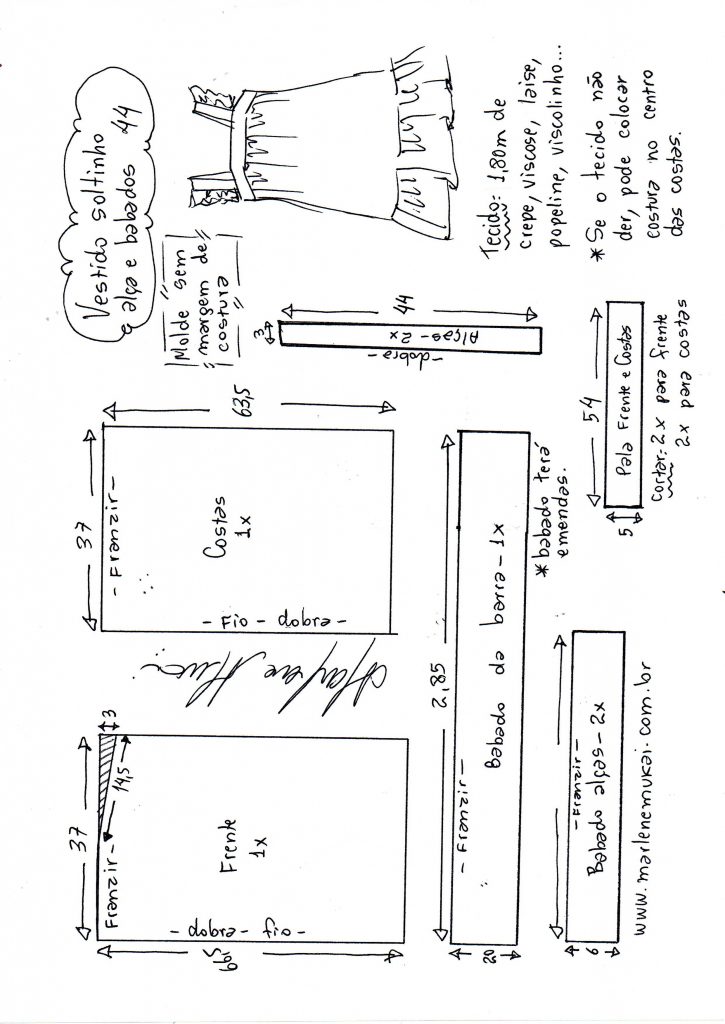 Vestido soltinho
e alça e babados 44
Molde sem
margem de
costura
Tecido: 1,80m de
crepe, viscose, laise,
popeline, viscolinho...
* Se o tecido não
der, pode colocar
costura no centro
das costas.
37
3
14,5
- Franzir -
Frente
1x
- dobra - fio -
66,5
37
- Franzir -
Costas
1x
- Fio - dobra -
63,5
3
Alças - 2x
- dobra -
44
2,85
- Franzir -
Babado da barra - 1x
20
* babado terá
emendas.
- Franzir -
Babado alças - 2x
6
54
Pala Frente e Costas
5
Cortar: 2x para frente
2x para costas
www.marlenemukai.com.br